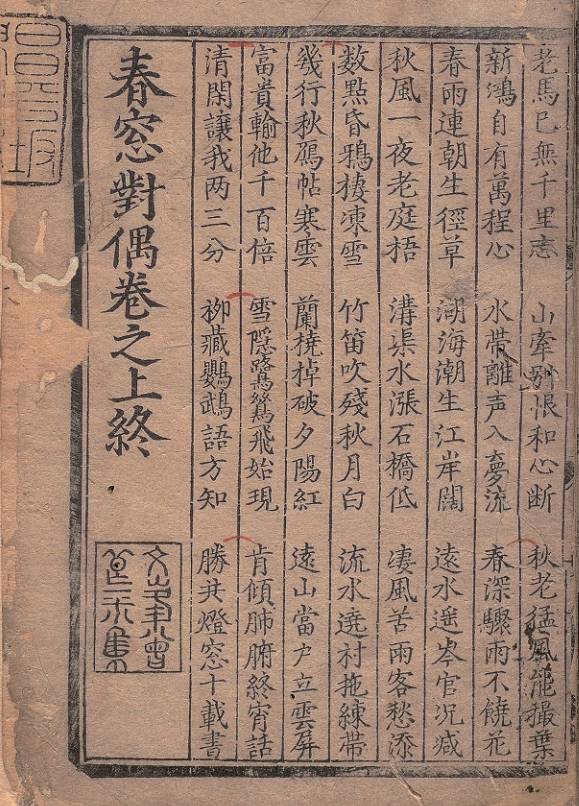 老馬已無千里志 山牽別恨和心斷 秋老猛風能撮葉
新鴻自有萬程心 水帶離声入夢流 春深驟雨不饒花
春雨連朝生徑草 湖海潮生江岸闊 遠水遥岑官况减
秋風一夜老庭梧 溝渠水漲石橋低 凄風苦雨客愁添
数點昏鴉棲凍雪 竹笛吹殘秋月白 流水遶村拖練帶
幾行秋鴈帖寒雲 蘭橈掉破夕陽紅 遠山當户立雲屏
富貴輸他千百倍 雪隠鷺鷥飛始現 肯傾肺腑終宵話
清閑讓我两三分 柳藏鸚鵡語方知 勝共燈窓十載書
春窓對偶卷之上終